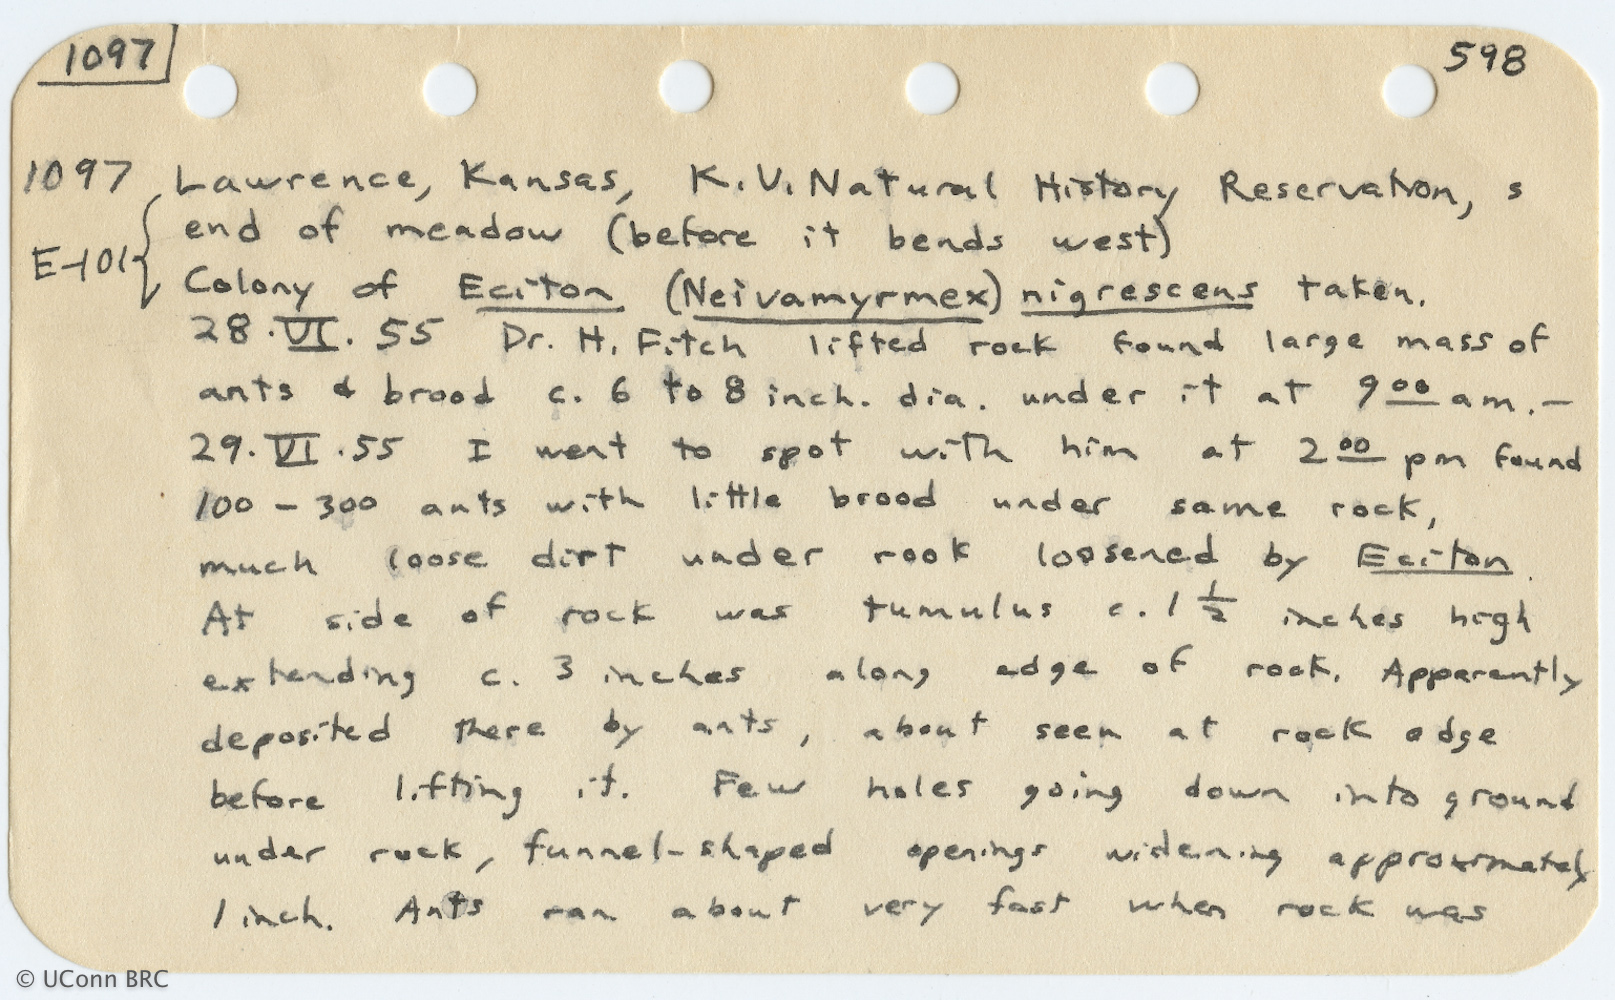 1097 598
1097 Lawrence, Kansas, K.U. Natural History Reservation, s
end of meadow (before it bends west)
E-101
Colony of Eciton (Neivamyrmex) nigrescens taken.
28.VI.55 Dr. H. Fitch lifted rock found large mass of
ants & brood c. 6 to 8 inch. dia. under it at 9 00 am.-
29.VI.55 I went to spot with him at 2 00 pm found
100 - 300 ants with little brood under same rock,
much loose dirt under rook loosened by Eciton.
At side of rock was tumulus c. 1 1/2 inches high
extending c. 3 inches along edge of rock. Apparently
deposited there by ants, about seen at rock edge
before lifting it. Few holes going down into ground
under rock, funnel-shaped openings widening approximately
1 inch. Ants ran about very fast when rock was
© UConn BRC